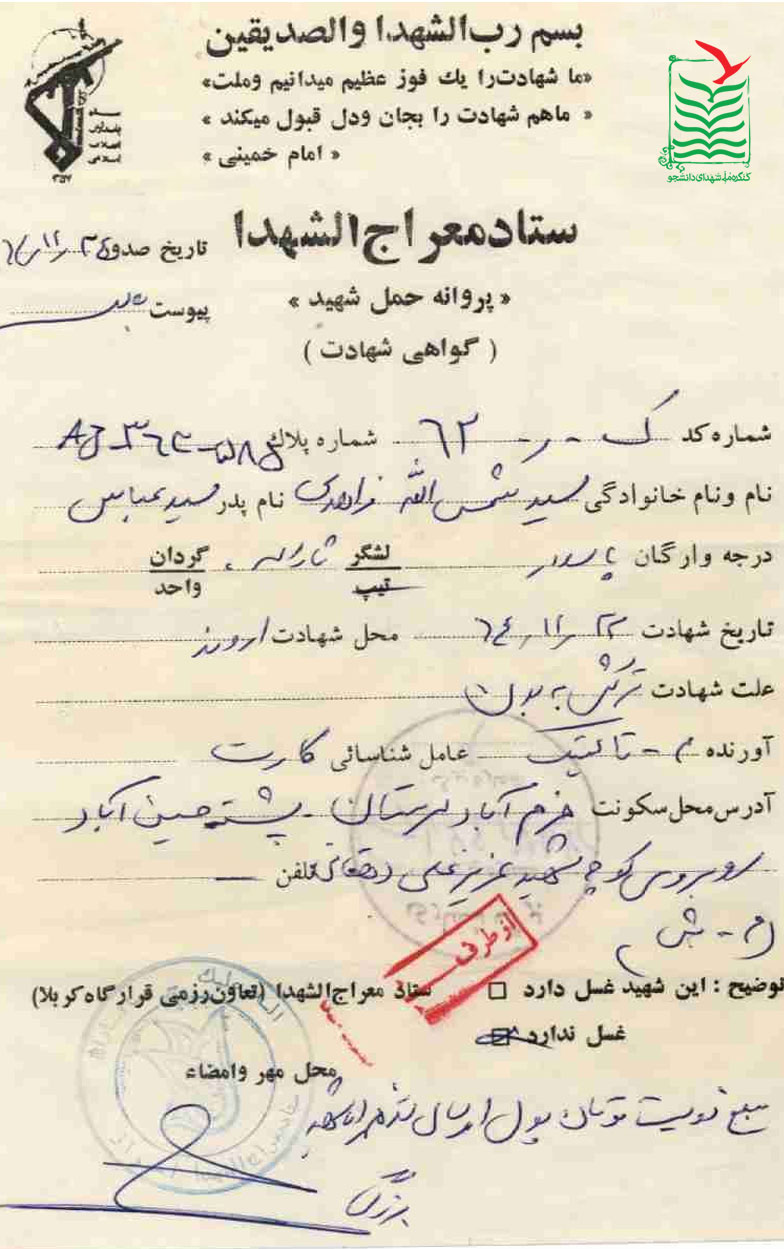 بسم رب‌الشهدا والصدیقین
«ما شهادت‌را یك فوز عظیم میدانیم وملت»
« ماهم شهادت را بجان ودل قبول میکند »
« امام خمینی »
سپاه
پاسداران
انقلاب
اسلامی
۱۳۵۷
کنگره ملی شهدای دانشجو
ستاد معراج‌الشهدا
تاریخ صدور ۲۴/۱۱/۶۴
« پروانه حمل شهید »
پیوست
( گواهی شهادت )
شماره کد ک - ر - ۶۲ شماره پلاك
نام ونام خانوادگی سید شمس الله نام پدر سید عباس
درجه وارگان پاسدار لشگر تیپ ثاراله گردان واحد
تاریخ شهادت ۲۲/۱۱/۶۴ محل شهادت اروند
علت شهادت ترکش به
آورنده م - تاکتیک عامل شناسائی کارت
آدرس محل سکونت خرم آباد لرستان - پشته حسین آباد
روبروی کوچه شهید عزیز علی تلفن —
(م - ش)
از طرف
توضیح : این شهید غسل دارد □ ستاد معراج‌الشهدا (تعاون‌رزمی قرارگاه کربلا)
غسل ندارد
محل مهر وامضاء
مبلغ دویست تومان پول